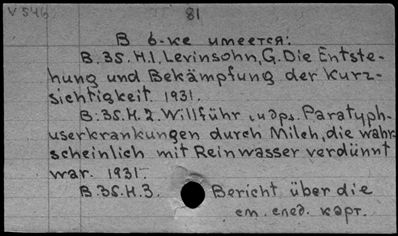 V 546
81
В б-ке имеется:
B. 35. H.1. Levinsohn, G. Die Entste-
hung und Bekämpfung der Kurz-
sichtigkeit. 1931.
B. 35. H.2. Willführ и др. Paratyph-
userkrankungen durch Milch, die wahr-
scheinlich mit Reinwasser verdünnt
war. 1931.
B. 35. H.3. Bericht über die
см. след. карт.